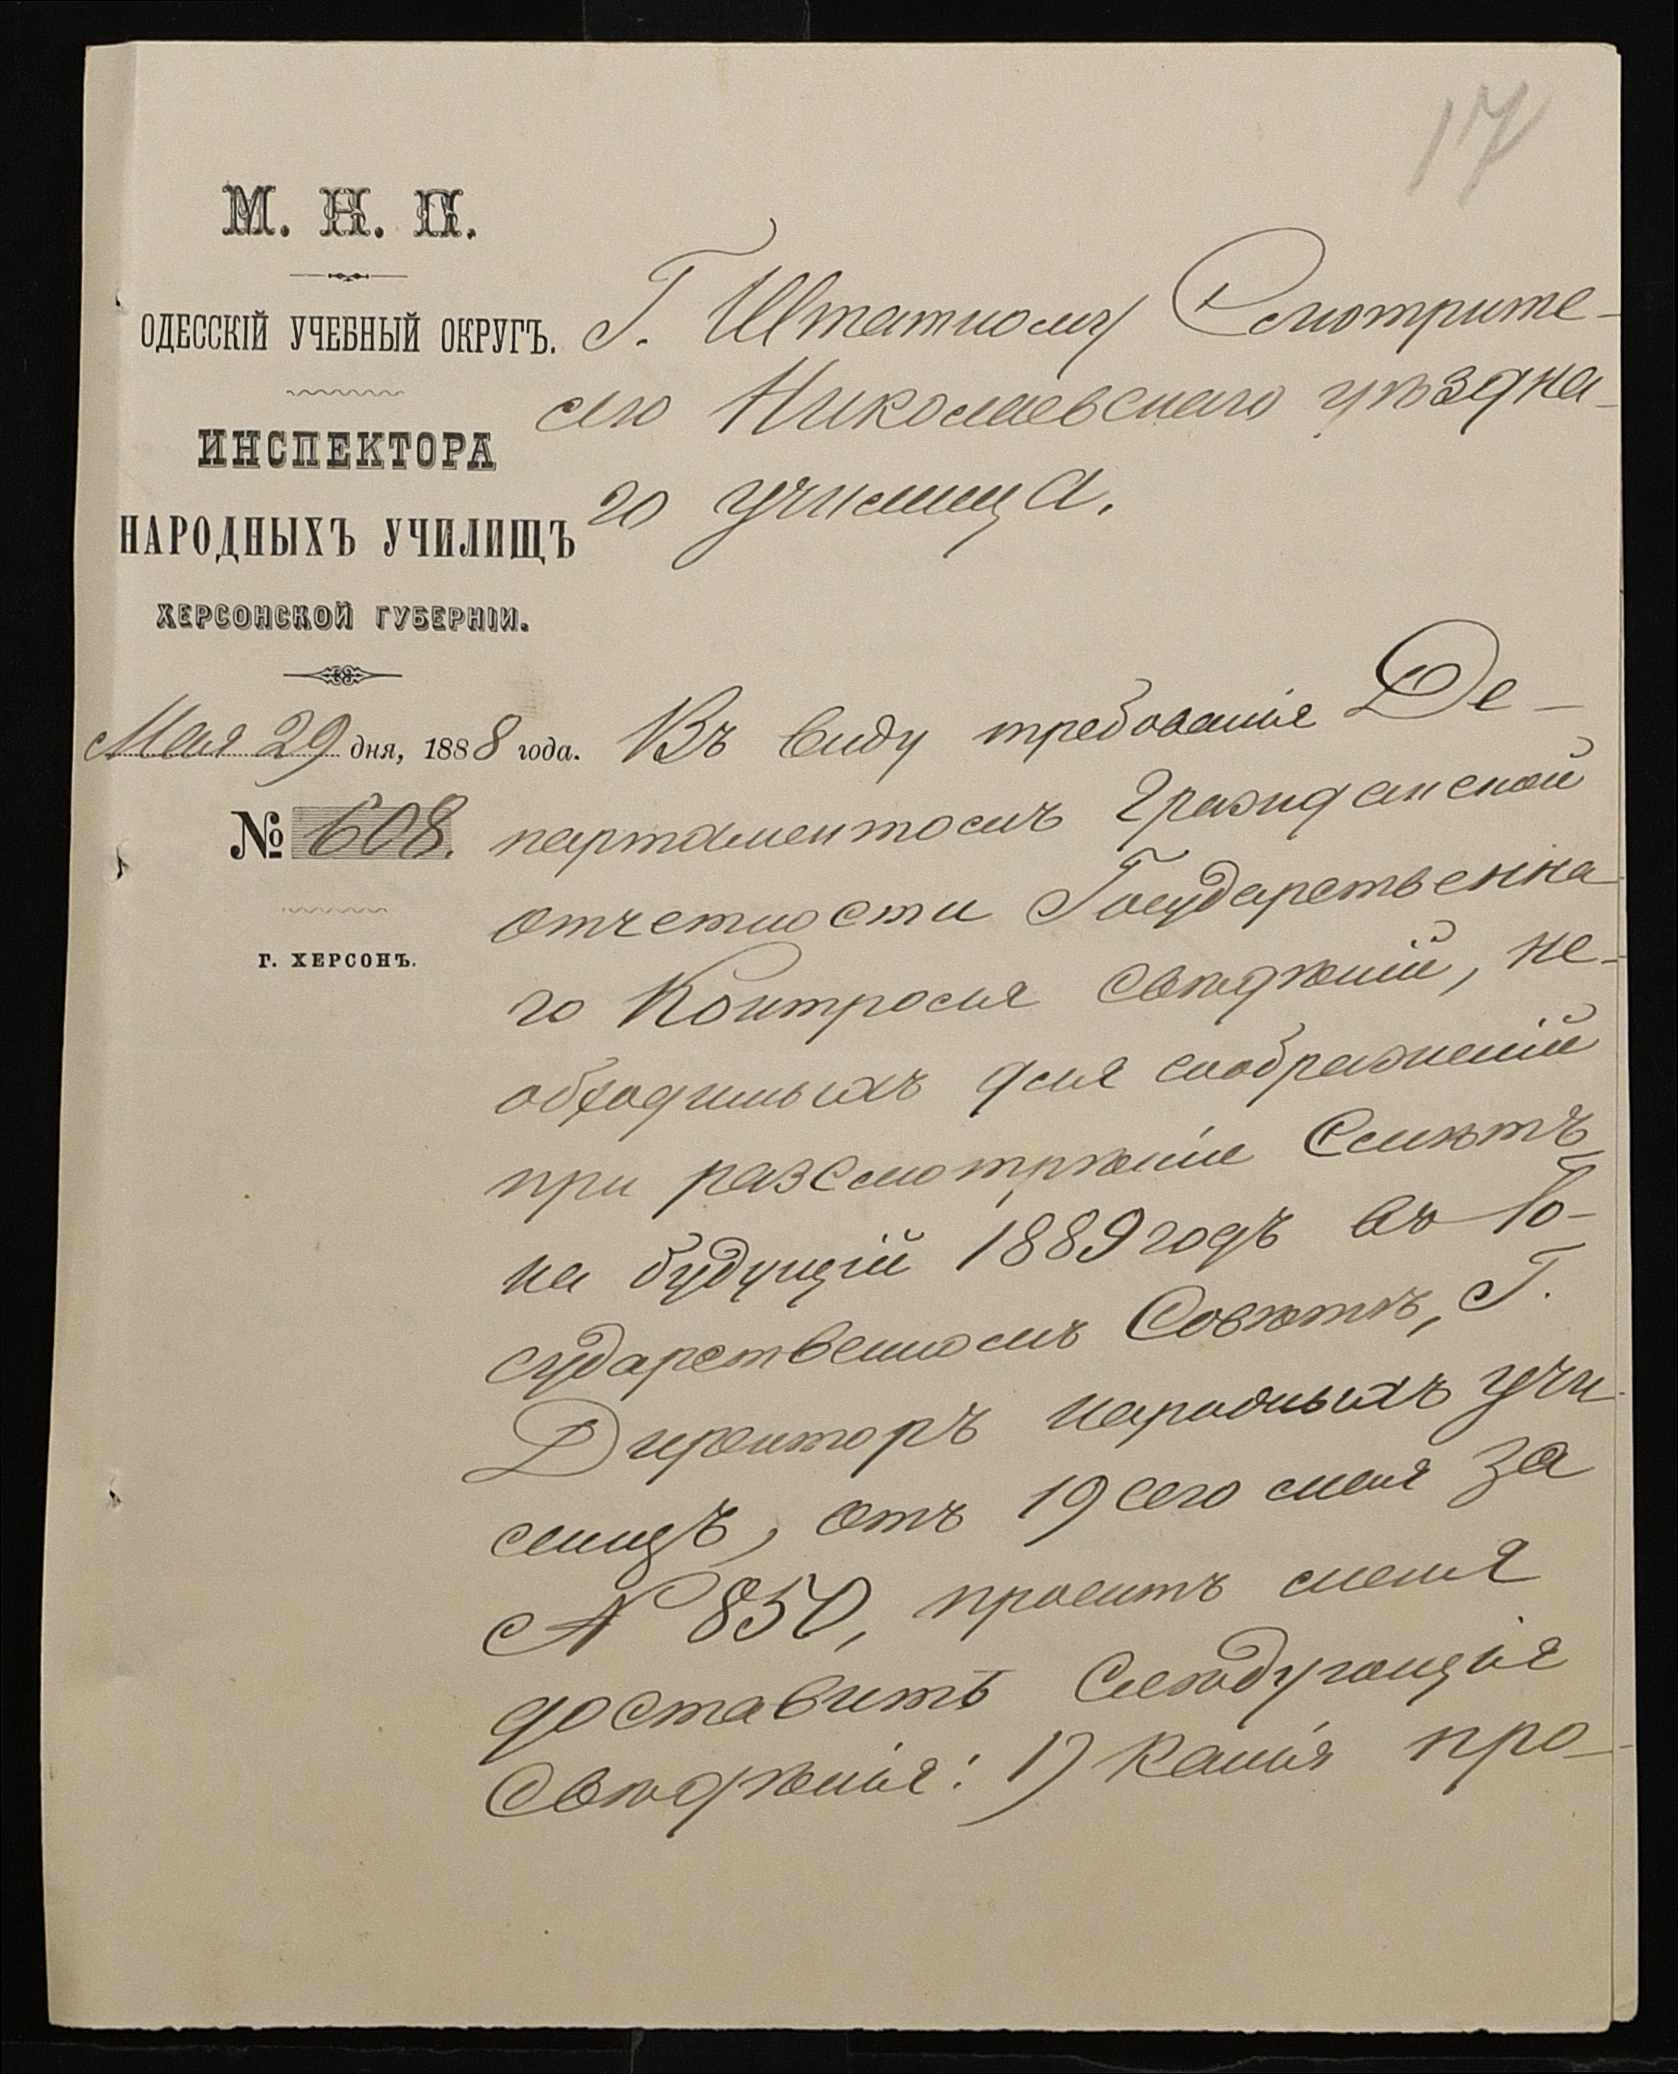 17
М. Н. П.
ОДЕССКІЙ УЧЕБНЫЙ ОКРУГЪ.
ИНСПЕКТОРА
НАРОДНЫХЪ УЧИЛИЩЪ
ХЕРСОНСКОЙ ГУБЕРНІИ.
Мая 29 дня, 1888 года.
№ 608.
Г. ХЕРСОНЪ.
Г. Штатному Смотрите-
лю Николаевскаго уѣздна-
го училища.
Въ виду требованія Де-
партаментомъ Гражданской
отчетности Государственна-
го Контроля свѣдѣній, не-
обходимыхъ для соображеній
при разсмотрѣніи Смѣтъ
на будущій 1889 годъ въ Го-
сударственномъ Совѣтѣ, Г.
Директоръ народныхъ учи-
лищъ, отъ 19 сего мая за
№ 850, проситъ меня
доставить слѣдующія
свѣдѣнія: 1) Какія про-